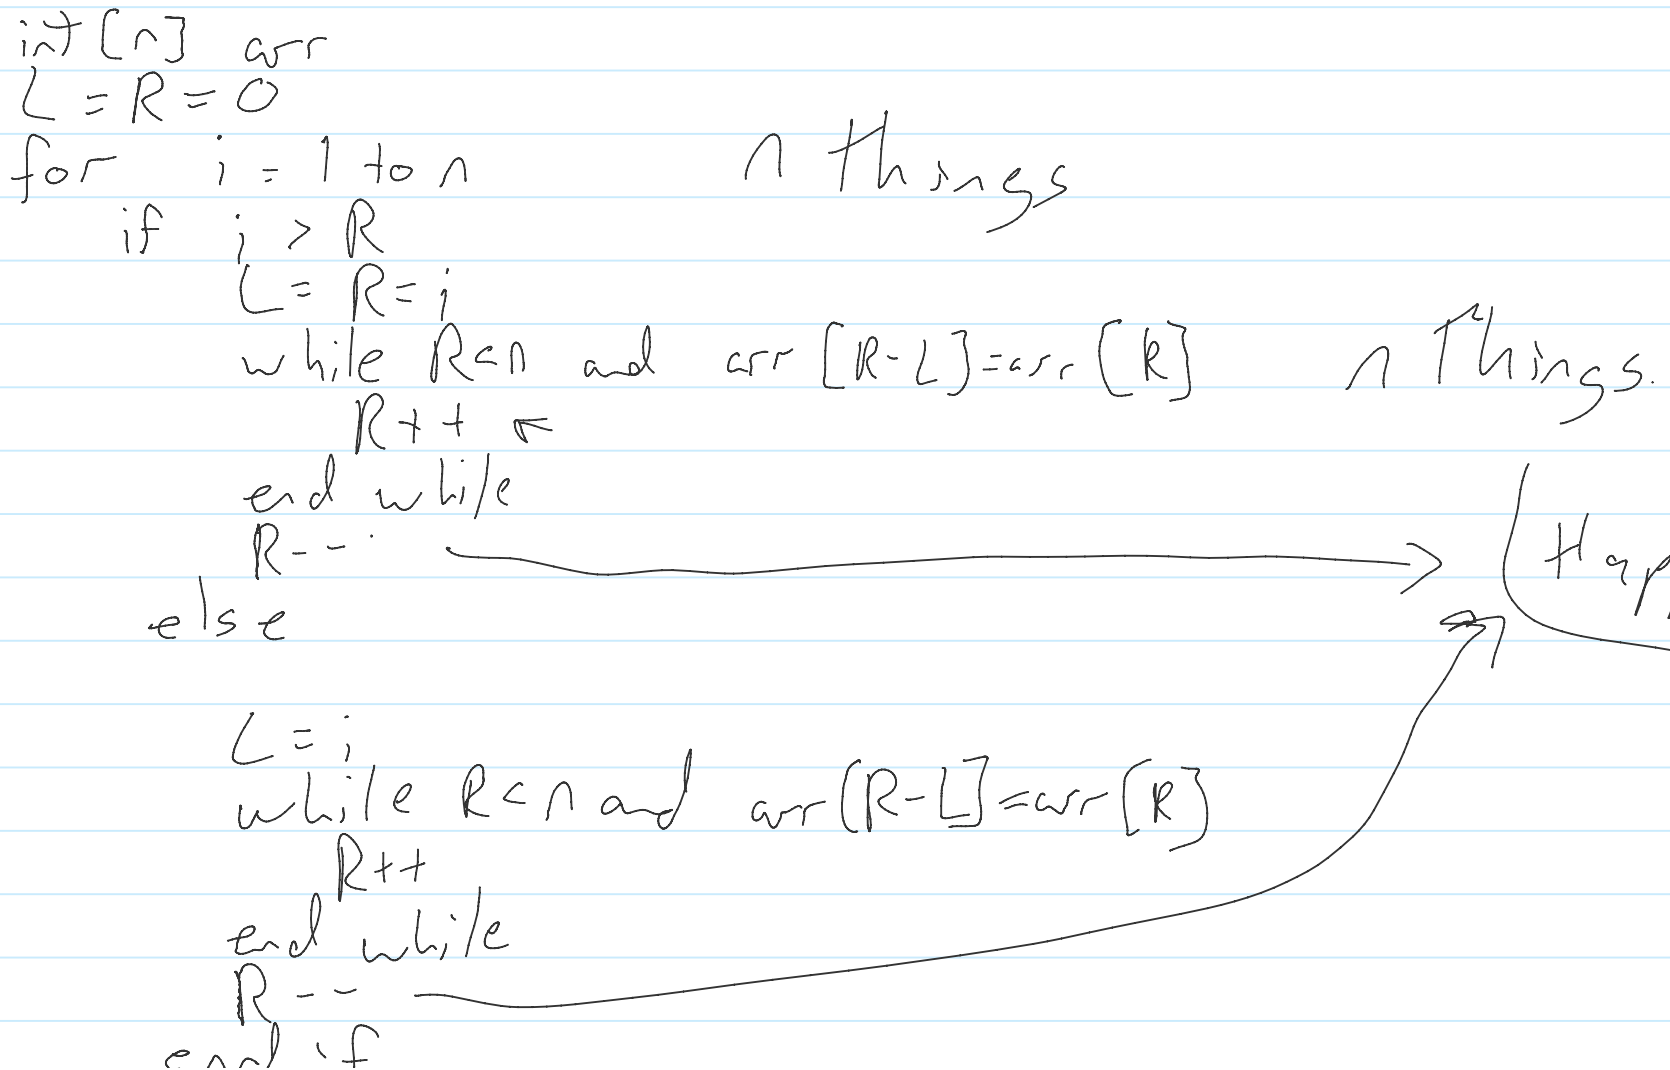 int[n] arr
L = R = 0
for i = 1 to n n things
if i > R
L = R = i
while R < n and arr[R-L]=arr[R] n things.
R++
end while
R--
else
L = i
while R < n and arr[R-L]=arr[R]
R++
end while
R--
end if